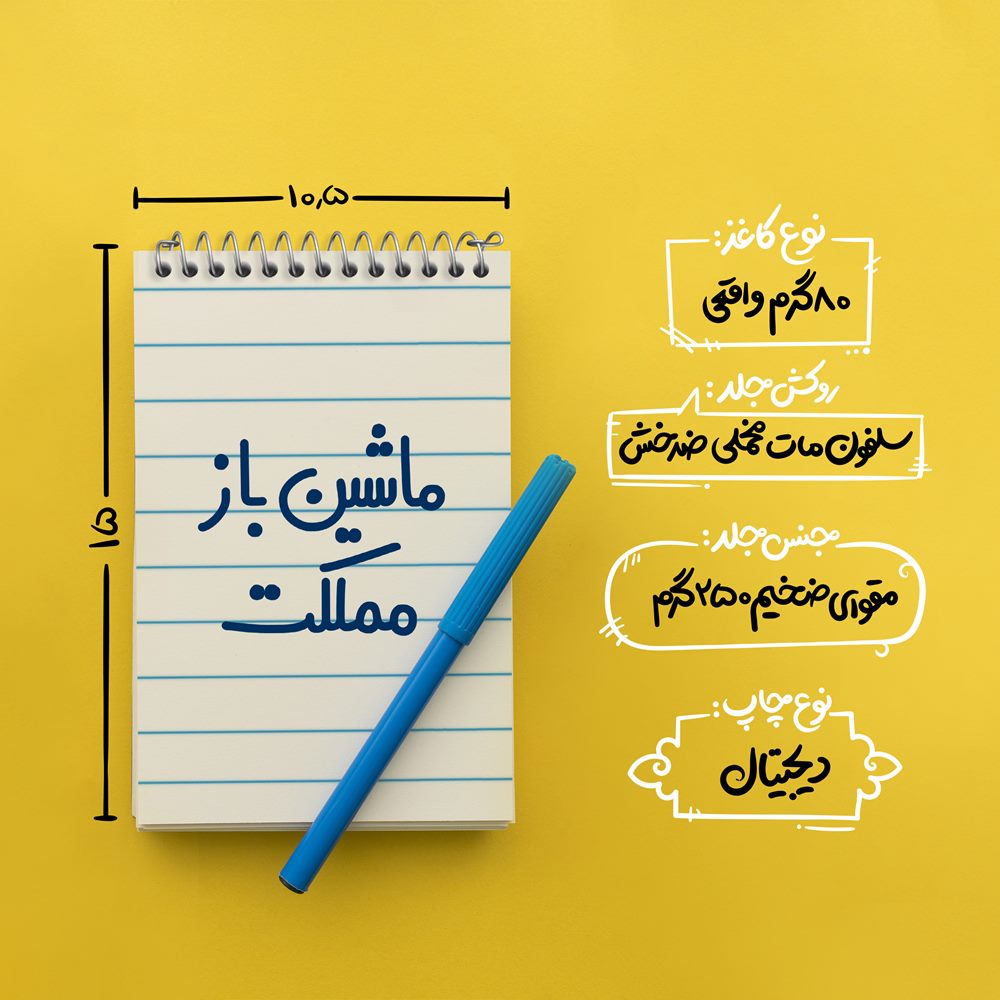 ۱۰٫۵
۱۵
ماشین باز
مملکت
نوع کاغذ:
۸۰ گرم واقعی
روکش جلد:
سلفون مات مخملی ضدخش
جنس جلد:
مقوای ضخیم ۲۵۰ گرم
نوع چاپ:
دیجیتال